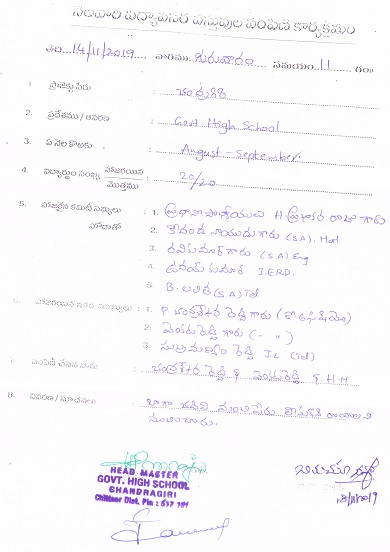 నెలవారి విద్యావసర వస్తువుల పంపిణీ కార్యక్రమం
తేది 14/11/2019 వారము గురువారం సమయం 11 గం
1 ప్రాజెక్టు పేరు : చంద్రగిరి
2. ప్రదేశము / ఆవరణ : Govt High School
3. ఏ నెల కొఱకు : August - September.
4. విద్యార్థుల సంఖ్య హాజరయిన / మొత్తము : 20/20
5. హాజరైన కమిటీ సభ్యులు హోదాతో : 1. ప్రధానోపాధ్యాయులు H. ప్రభాకర రాజు గారు
2. కోదండ నాయుడు గారు (S.A). Mat
3. రవికుమార్ గారు (S.A) Eng
4. ఉదయ్ కుమార్ I.E.R.D.
5. B. లలిత (S.A) Tel
6. హాజరయిన ఇతర ముఖ్యులు : 1. P చంద్రశేఖర రెడ్డి గారు
2. వెంకటరెడ్డి గారు ( - " )
3. సుబ్రమణ్యం రెడ్డి J.L (Tel)
పంపిణీ చేసిన వారు : చంద్రశేఖర రెడ్డి & వెంకటరెడ్డి & H.M
8. వివరణ / సూచనలు : బాగా చదివి మంచి పేరు
HEAD MASTER
GOVT. HIGH SCHOOL
CHANDRAGIRI
Chittoor Dist. Pin : 517 101